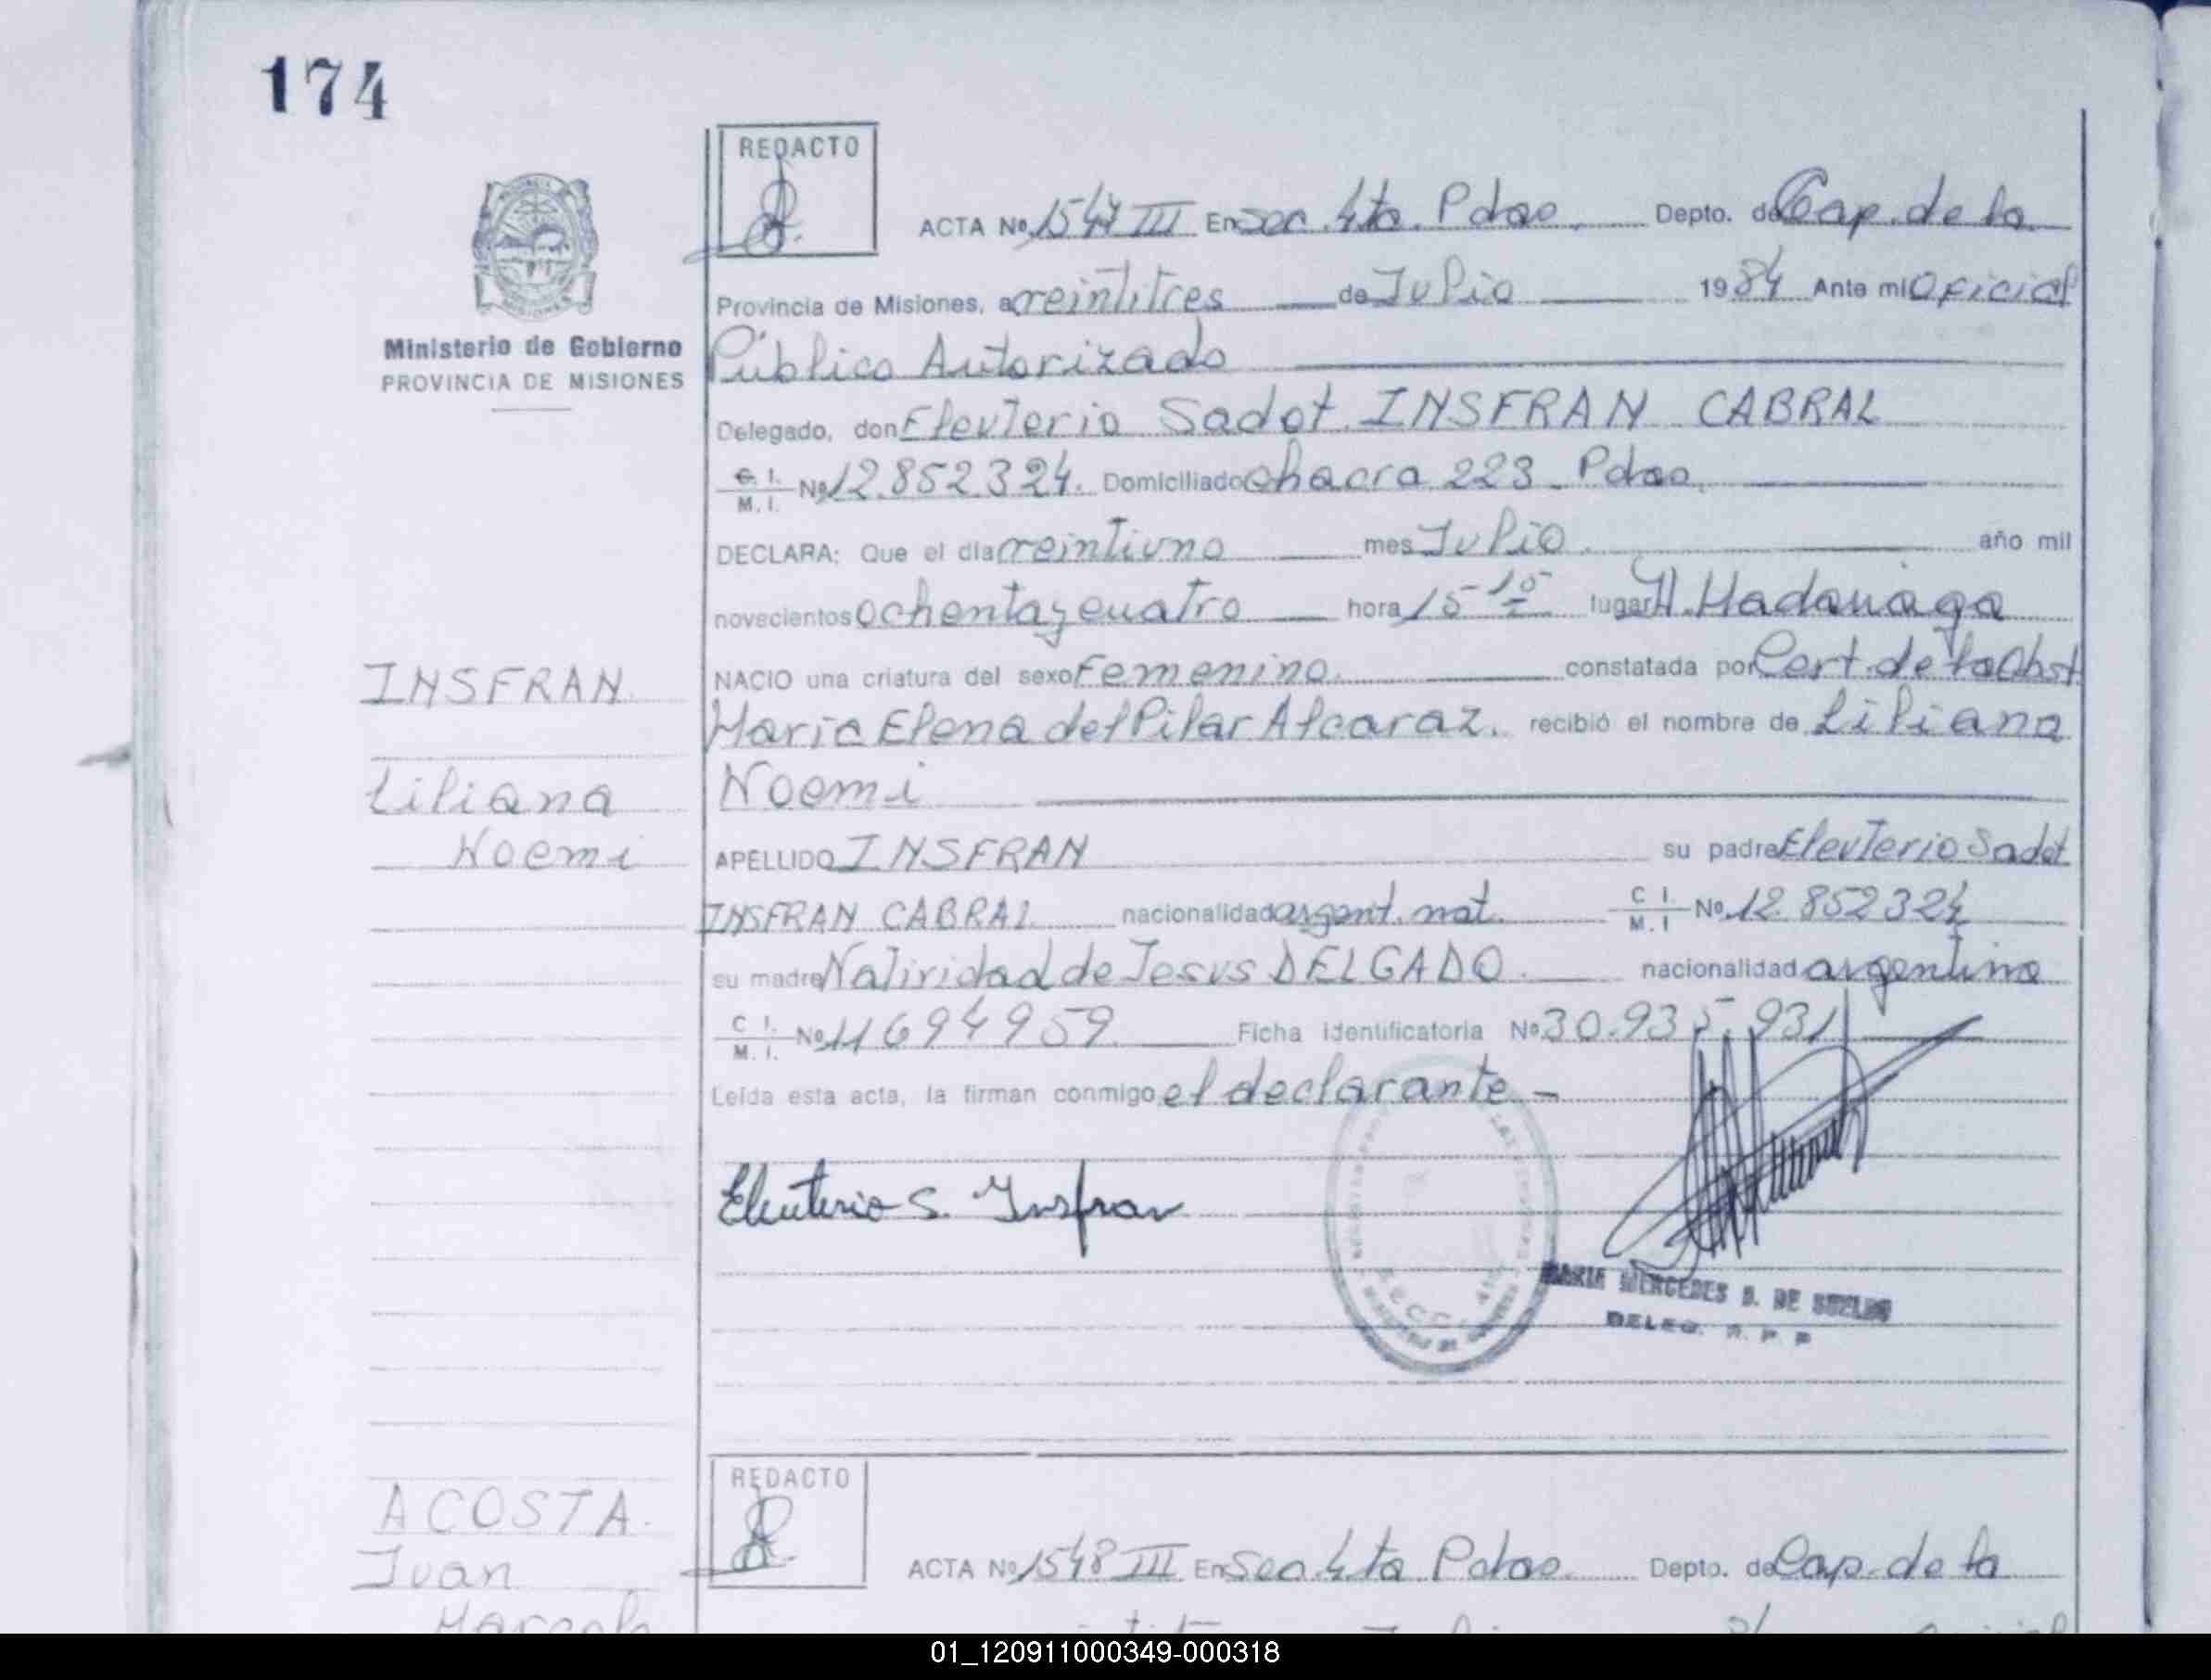 174
REDACTO
ACTA Nº 1547 III En Sec. 4ta. Pdas. Depto. de Cap. de la
Provincia de Misiones, a veintitres de Julio 1984 Ante mi Oficial
Público Autorizado
Ministerio de Gobierno
PROVINCIA DE MISIONES
Delegado, don Eleuterio Sadot INSFRAN CABRAL
C. I. M. I. Nº 12.852.324. Domiciliado chacra 223 Pdas.
DECLARA: Que el día veintiuno mes Julio año mil
novecientos ochenta y cuatro hora 15-10 lugar H. Madariaga
INSFRAN
NACIO una criatura del sexo Femenino. constatada por Cert. de la Obst
Maria Elena del Pilar Alcaraz. recibió el nombre de Liliana
Liliana
Noemi
Noemi
APELLIDO INSFRAN su padre Eleuterio Sadot
INSFRAN CABRAL nacionalidad argent. nat. C I. M. I Nº 12.852324
su madre Natividad de Jesus DELGADO. nacionalidad argentina
C I. M. I. Nº 11694959. Ficha identificatoria Nº 30.935.931
Leída esta acta, la firman conmigo el declarante -
Eleuterio S. Insfran
MARIA MERCEDES B. DE
DELEG. R. P. P
REDACTO
ACOSTA.
Juan
ACTA Nº 1548 III En Sec. 4ta Pdas. Depto. de Cap. de la
01_120911000349-000318